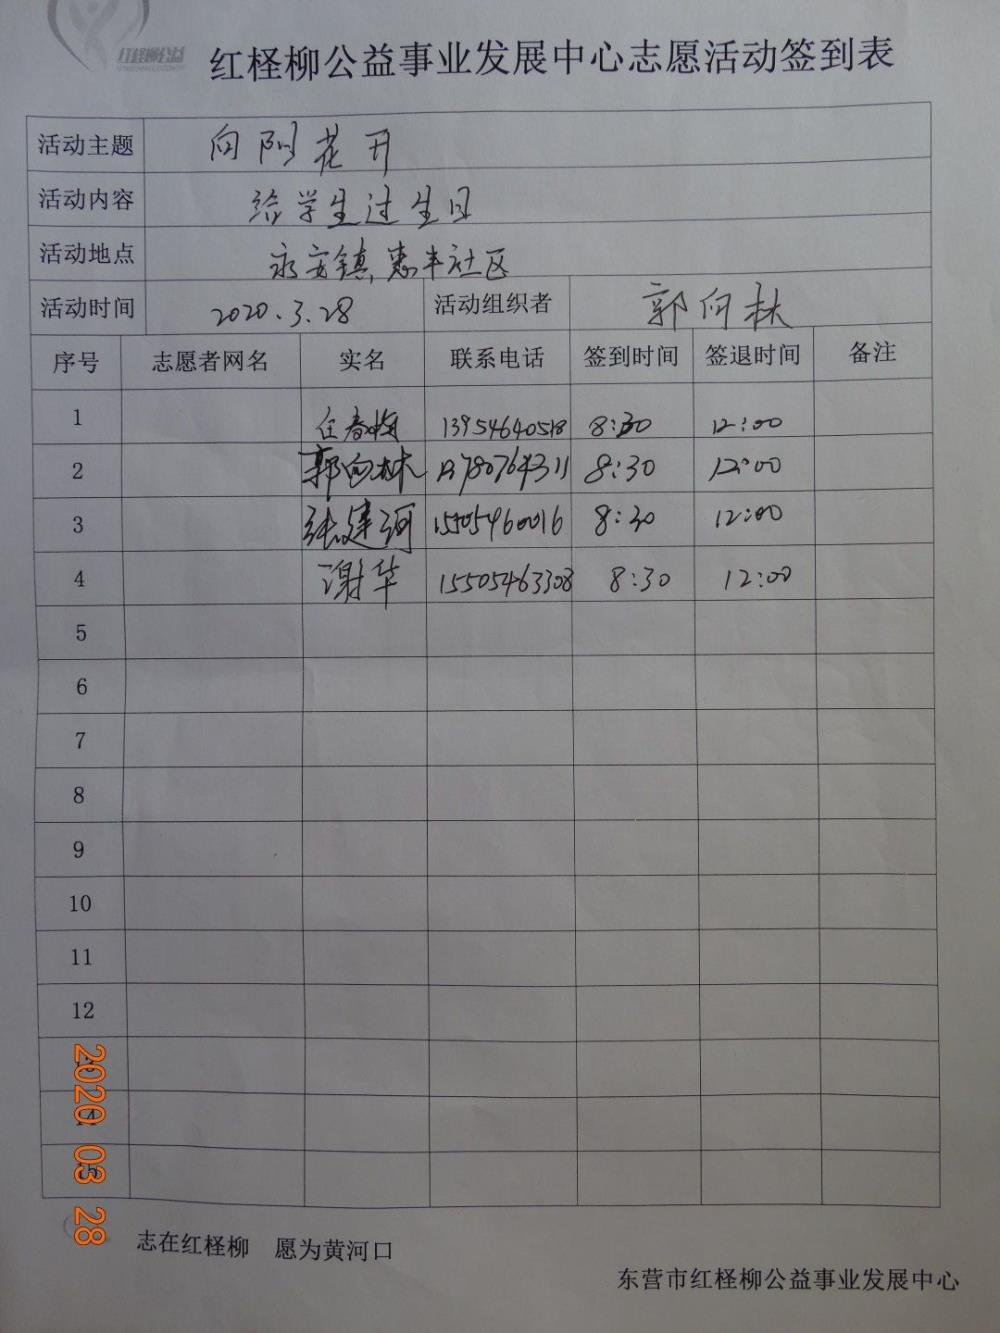 红柽柳公益
红柽柳公益事业发展中心志愿活动签到表
活动主题 向阳花开
活动内容 给学生过生日
活动地点 永安镇惠丰社区
活动时间 2020.3.28 活动组织者 郭向林
序号 志愿者网名 实名 联系电话 签到时间 签退时间 备注
1 任春梅 13954640518 8:30 12:00
2 郭向林 13780764311 8:30 12:00
3 张建河 15505460016 8:30 12:00
4 谢华 15505463308 8:30 12:00
5
6
7
8
9
10
11
12
13
14
15
2020 03 28
志在红柽柳 愿为黄河口
东营市红柽柳公益事业发展中心